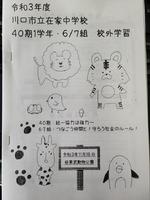 令和3年度
川口市立在家中学校
40期1学年・6/7組 校外学習
40期 絆一協力は強力一
6/7組:つなごう仲間と!守ろう社会のルール!